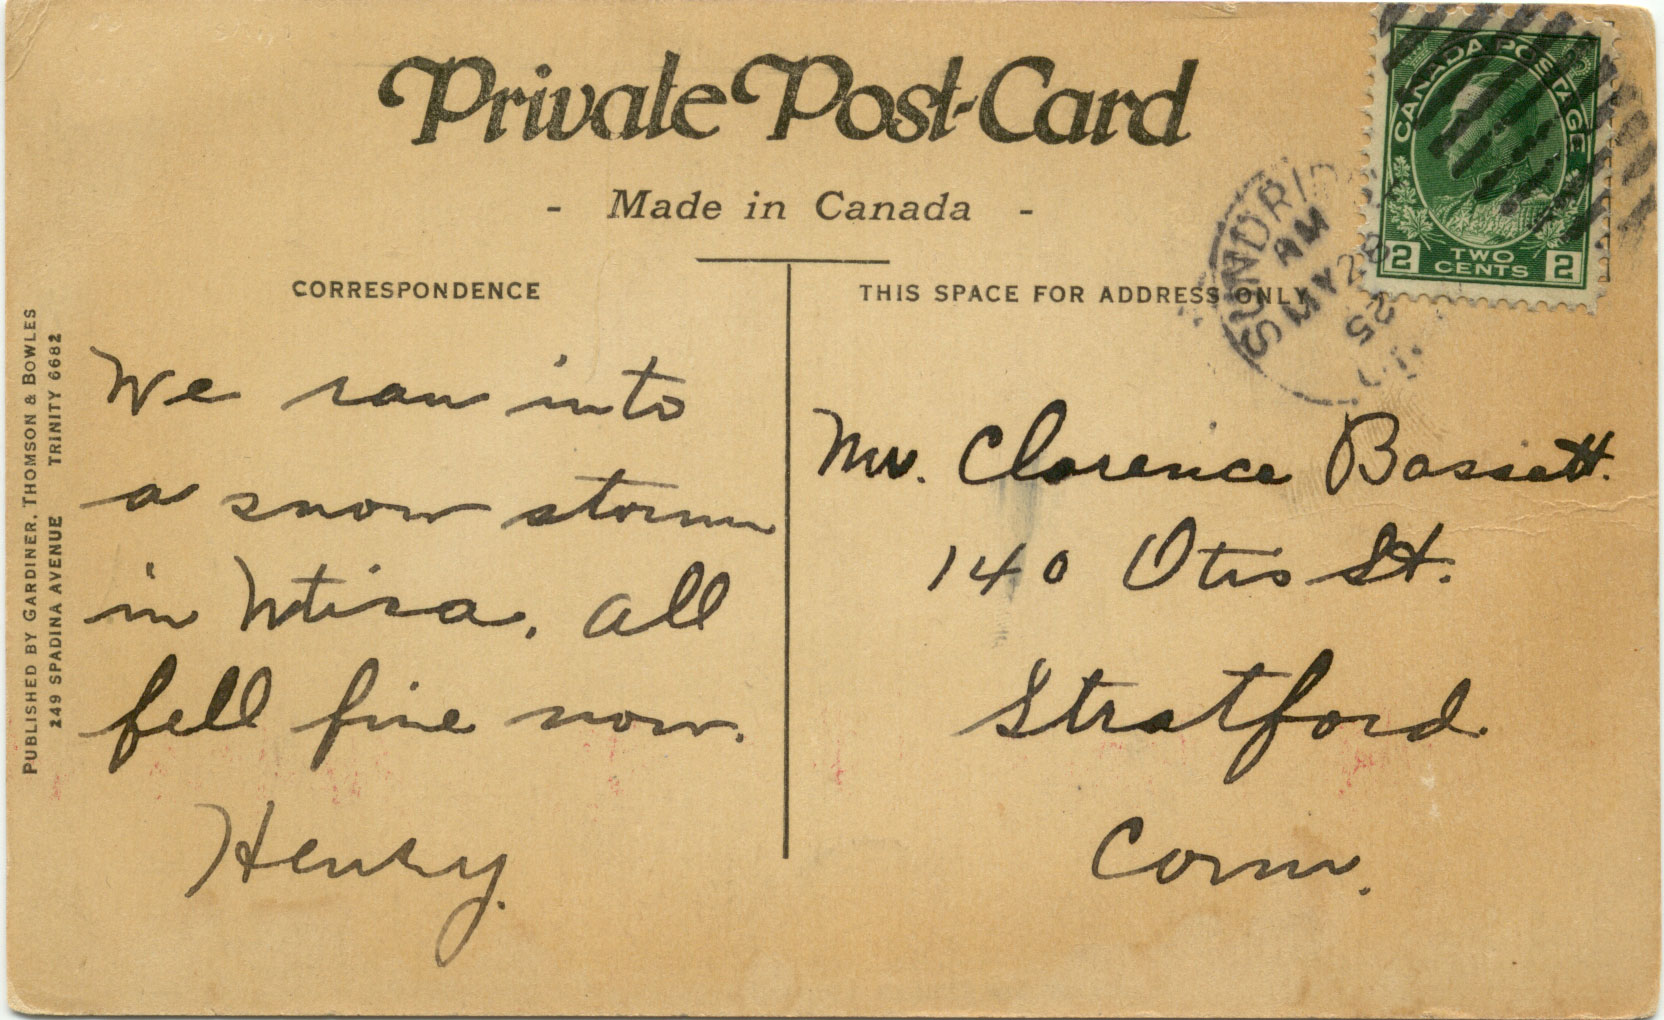 Private Post-Card
- Made in Canada -
CORRESPONDENCE
THIS SPACE FOR ADDRESS ONLY
CANADA POSTAGE
2 TWO CENTS 2
SUNDRID
AM
MY 28
25
PUBLISHED BY GARDINER, THOMSON & BOWLES
249 SPADINA AVENUE TRINITY 6682
We ran into
a snow storm
in Utica. All
fell fine now.
Henry.
Mr. Clarence Bassett.
140 Otis St.
Stratford
Conn.